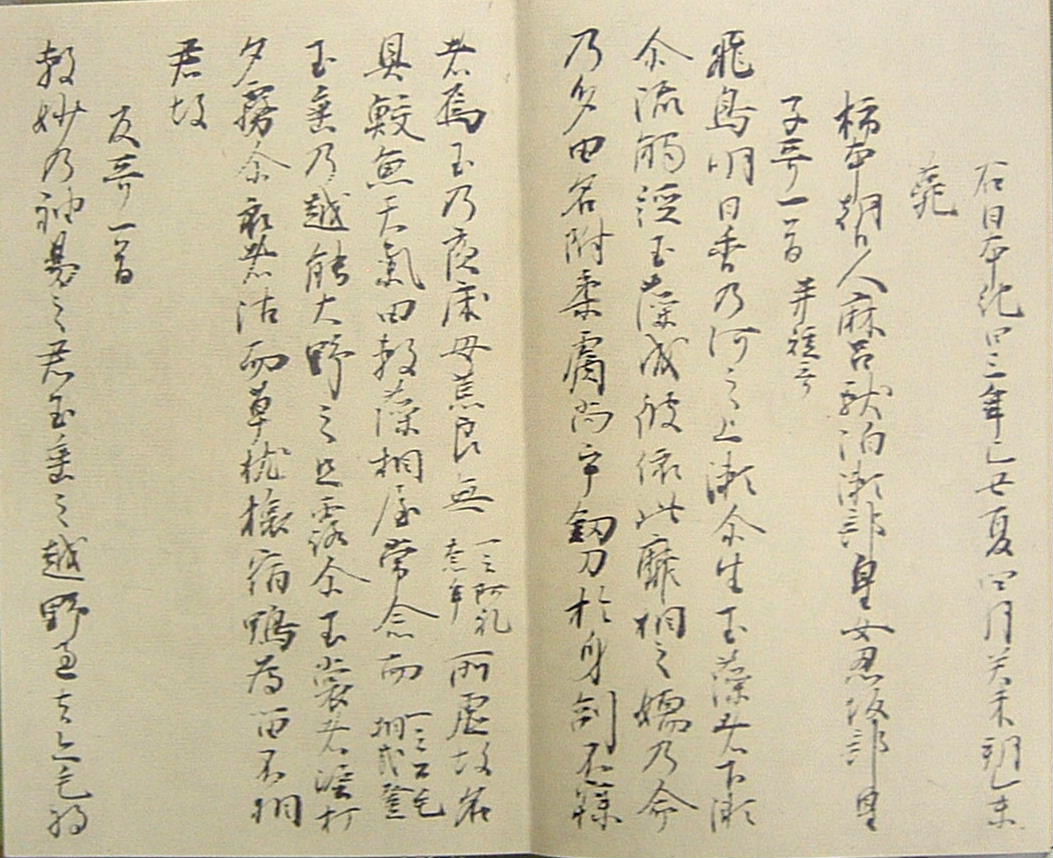 右日本紀曰三年己丑夏四月癸未朔乙未
薨
柿本朝臣人麻呂献泊瀬部皇女忍坂部皇
子哥一首 并短哥
飛鳥明日香乃河之上瀬尓生玉藻者下瀬
尓流觸經玉藻成彼依此靡相之嬬乃命
乃多田名附柔膚尚乎釼刀於身副不寐
者烏玉乃夜床母荒良無 一云阿礼奈牟 所虚故名
具鮫魚天氣田敷藻相屋常念而 一云公毛相哉登
玉垂乃越能大野之旦露尓玉裳者埿打
夕霧尓衣者沾而草枕旅宿鴨為留不相
君故
反哥一首
敷妙乃袖易之君玉垂之越野過去亦毛将